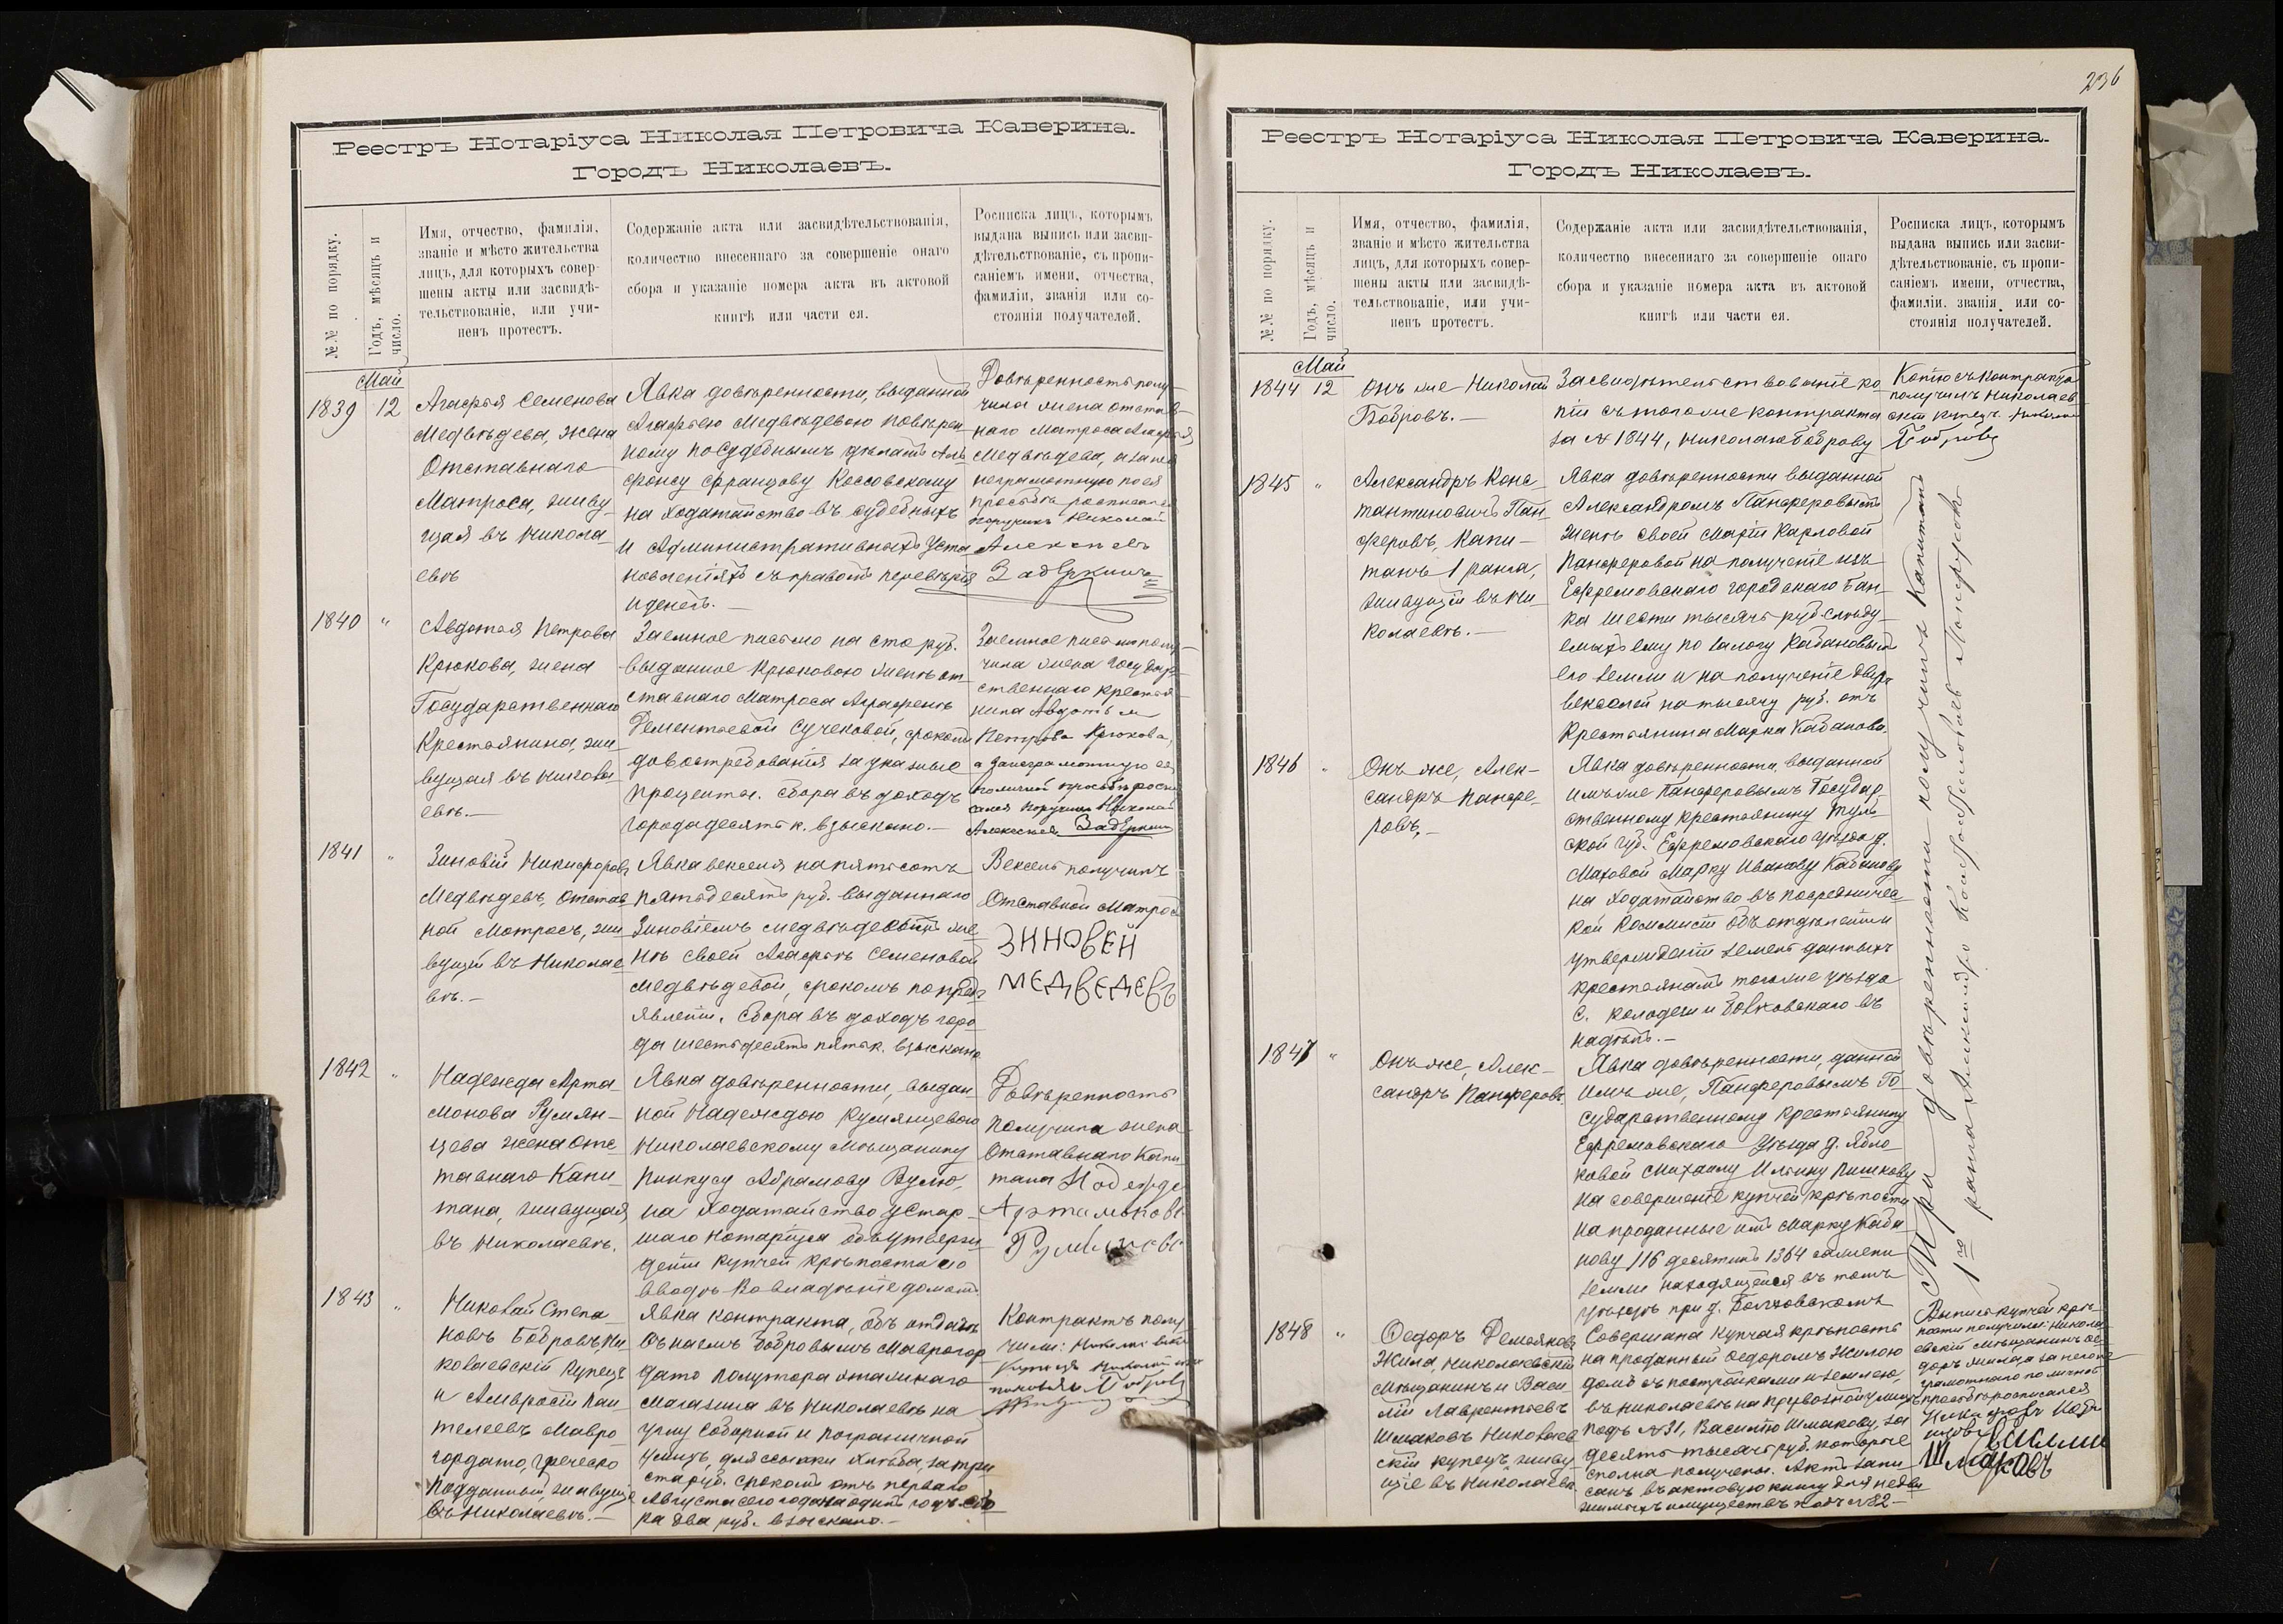 Реестръ Нотаріуса Николая Петровича Каверина.
Городъ Николаевъ.
№№ по порядку.
Годъ, мѣсяцъ и
число.
Имя, отчество, фамилія,
званіе и мѣсто жительства
лицъ, для которыхъ совер-
шены акты или засвидѣ-
тельствованіе, или учи-
ненъ протестъ.
Содержаніе акта или засвидѣтельствованія,
количество внесеннаго за совершеніе онаго
сбора и указаніе номера акта въ актовой
книгѣ или части ея.
Росписка лицъ, которымъ
выдана выпись или засви-
дѣтельствованіе, съ пропи-
саніемъ имени, отчества,
фамиліи, званія или со-
стоянія получателей.
Май
1839
12
Агафья Семенова
Медвѣдева, жена
Отставнаго
Матроса, живу-
щая въ Никола-
евѣ
Явка довѣренности, выданной
Агафьею Медвѣдевою повѣрен-
ному по судебнымъ дѣламъ Аль-
фонсу Францову Коссовскому
на ходатайство въ судебныхъ
и административныхъ уста-
новленіяхъ съ правомъ перевѣрія
и денегъ.
Довѣренность полу-
чила жена отстав-
наго Матроса Агафья
Медвѣдева, а за нея
неграмотную по ея
просьбѣ росписался
поручикъ Николай
Алексѣевъ
Задеркинъ
1840
"
Авдотья Петрова
Крюкова, жена
Государственнаго
Крестьянина, жи-
вущая въ Никола-
евѣ.
Заемное письмо на сто руб.
выданное Крюковою женѣ от-
ставнаго Матроса Аграфенѣ
Дементьевой Сучековой, срокомъ
до востребованія за указные
проценты. Сбора въ доходъ
города десять к. взыскано.
Заемное письмо полу-
чила жена Государ-
ственнаго крестья-
нина Авдотья
Петрова Крюкова,
а за неграмотную ея
по личной просьбѣ роспи-
сался поручикъ Николай
Алексѣевъ Задеркинъ
1841
"
Зиновій Никифоровъ
Медвѣдевъ, отстав-
ной Матросъ, жи-
вущій въ Николае-
вѣ.
Явка векселя на пятьсотъ
пятьдесятъ руб. выданнаго
Зиновіемъ Медвѣдевымъ же-
нѣ своей Агафьѣ Семеновой
Медвѣдевой, срокомъ по предъ-
явленіи. Сбора въ доходъ горо-
да шестьдесятъ пять к. взыскано
Вексель получилъ
Отставной Матросъ
ЗИНОВЕЙ
МЕДВЕДЕВЪ
1842
"
Надежда Арта-
монова Румян-
цева жена Отс-
тавнаго Капи-
тана, живущая
въ Николаевѣ.
Явка довѣренности, выдан-
ной Надеждою Румянцевою
Николаевскому Мѣщанину
Пинкусу Абрамову Вулю,
на ходатайство у Стар-
шаго Нотаріуса объ утверж-
деніи купчей крѣпости и о
вводѣ во владѣніе домомъ.
Довѣренность
Получила жена
Отставнаго Капи-
тана Надежда
Артамонова
Румянцева
1843
"
Николай Степа-
новъ Бобровъ, Ни-
колаевскій Купецъ
и Амвросій Пан-
телеевъ Мавро-
гордато, Греческо-
подданный, живущіе
въ Николаевѣ.
Явка контракта, объ отдачѣ
въ наемъ Бобровымъ Маврогор-
дато полутора этажнаго
Магазина въ Николаевѣ на
углу Соборной и Пограничной
улицъ, для ссыпки хлѣба, за три-
ста руб. срокомъ отъ перваго
Августа сего года на одинъ годъ. Сбо-
ра два руб. взыскано.
Контрактъ полу-
чили:
Бобровъ
236
Реестръ Нотаріуса Николая Петровича Каверина.
Городъ Николаевъ.
№№ по порядку.
Годъ, мѣсяцъ и
число.
Имя, отчество, фамилія,
званіе и мѣсто жительства
лицъ, для которыхъ совер-
шены акты или засвидѣ-
тельствованіе, или учи-
ненъ протестъ.
Содержаніе акта или засвидѣтельствованія,
количество внесеннаго за совершеніе онаго
сбора и указаніе номера акта въ актовой
книгѣ или части ея.
Росписка лицъ, которымъ
выдана выпись или засви-
дѣтельствованіе, съ пропи-
саніемъ имени, отчества,
фамиліи, званія или со-
стоянія получателей.
Май
1844
12
Онъ же Николай
Бобровъ.
Засвидѣтельствованіе ко-
піи съ того же контракта
за № 1844, Николаю Боброву
Копію съ Контракта
получилъ Николаев-
скій купецъ Николай
Бобровъ
1845
"
Александръ Конс-
тантиновичъ Пан-
феровъ, Капи-
танъ 1 ранга,
живущій въ Ни-
колаевѣ.
Явка довѣренности выданной
Александромъ Панферовымъ
женѣ своей Маріи Карловой
Панферовой на полученіе изъ
Ефремовскаго городскаго Бан-
ка шести тысячъ руб. слѣду-
емыхъ ему по залогу Кабановымъ
его земли и на полученіе двухъ
векселей на тысячу руб. отъ
Крестьянина Марка Кабанова.
1846
"
Онъ же, Алек-
сандръ Панфе-
ровъ.
Явка довѣренности, выданной
имъ же Панферовымъ Государ-
ственному крестьянину Туль-
ской губ. Ефремовскаго уѣзда д.
Маховой Марку Иванову Кабанову
на ходатайство въ посредничес-
кой Коммисіи объ отдѣленіи и
утвержденіи земель данныхъ
крестьянамъ того же уѣзда
С. Колодези и Болховскаго въ
надѣлъ.
1847
"
Онъ же, Алек-
сандръ Панферовъ.
Явка довѣренности, данной
имъ же, Панферовымъ Го-
сударственному крестьянину
Ефремовскаго Уѣзда д. Ябло-
ковой Михаилу Ильину Пишкову
на совершеніе купчей крѣпости
на проданные имъ Марку Каба-
нову 116 десятинъ 1364 сажени
земли находящейся въ томъ
уѣздѣ при д. Болховскомъ
Три довѣренности получилъ Капитанъ
1го ранга Александръ Константиновъ Панферовъ
1848
"
Федоръ Демьяновъ
Жила, Николаевскій
Мѣщанинъ и Васи-
лій Лаврентьевъ
Шмаковъ Николаев-
скій купецъ, живу-
щіе въ Николаевѣ
Совершена купчая крѣпость
на проданный Федоромъ Жилою
домъ съ постройками и землею,
въ Николаевѣ на Привозной улицѣ
подъ № 31, Василію Шмакову, за
десять тысячъ руб. которые
сполна получены. Актъ запи-
санъ въ актовую книгу для недви-
жимыхъ имуществъ подъ № 82
Выпись купчей крѣ-
пости получили: Никола-
евскій Мѣщанинъ Фе-
доръ Жила, а за него не-
грамотнаго по личной
просьбѣ росписался
Василий
Шмаковъ